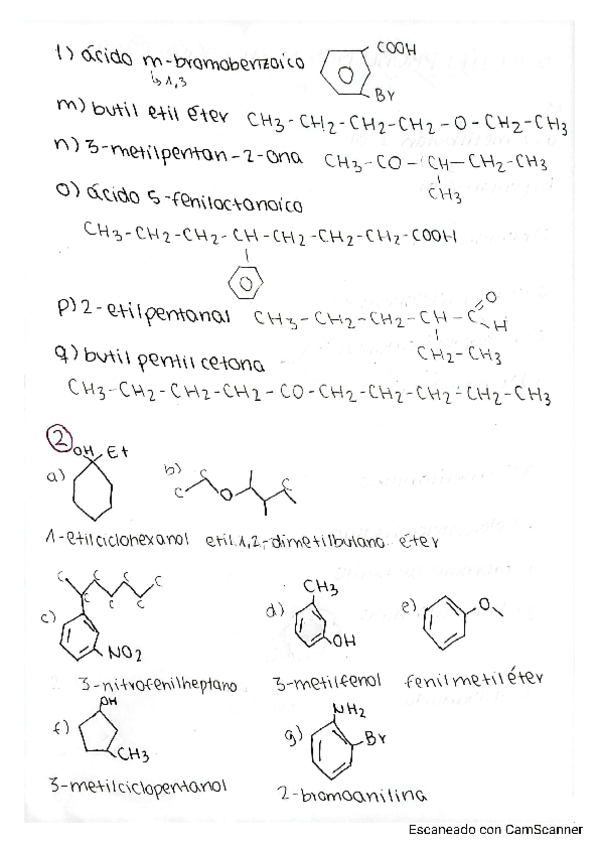 l) ácido m-bromobenzoico COOH
↳1,3
Br
m) butil etil éter CH3-CH2-CH2-CH2-O-CH2-CH3
n) 3-metilpentan-2-ona CH3-CO-CH-CH2-CH3
CH3
o) ácido 5-feniloctanoico
CH3-CH2-CH2-CH-CH2-CH2-CH2-COOH
p) 2-etilpentanal CH3-CH2-CH2-CH-C O
H
CH2-CH3
q) butil pentil cetona
CH3-CH2-CH2-CH2-CO-CH2-CH2-CH2-CH2-CH3
2
OH Et
a) b) C C O C
1-etilciclohexanol etil 1,2,-dimetilbutano éter
C C C C
C C C
c) NO2 d) CH3 OH e) O
3-nitrofenilheptano 3-metilfenol fenilmetiléter
f) OH CH3 g) NH2 Br
3-metilciclopentanol 2-bromoanilina
Escaneado con CamScanner